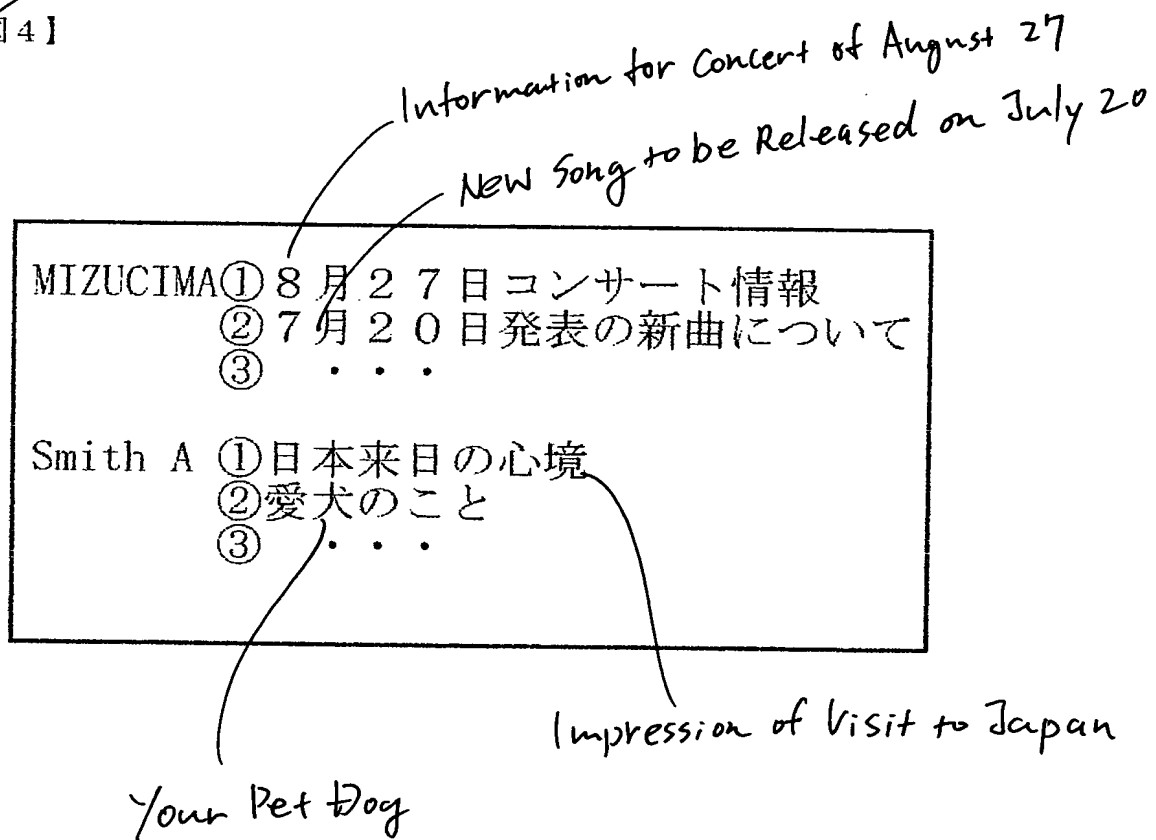 図4】
Information for Concert of August 27
New Song to be Released on July 20
MIZUCIMA①8月27日コンサート情報
②7月20日発表の新曲について
③ ・・・
Smith A ①日本来日の心境
②愛犬のこと
③ ・・・
Impression of Visit to Japan
Your Pet Dog